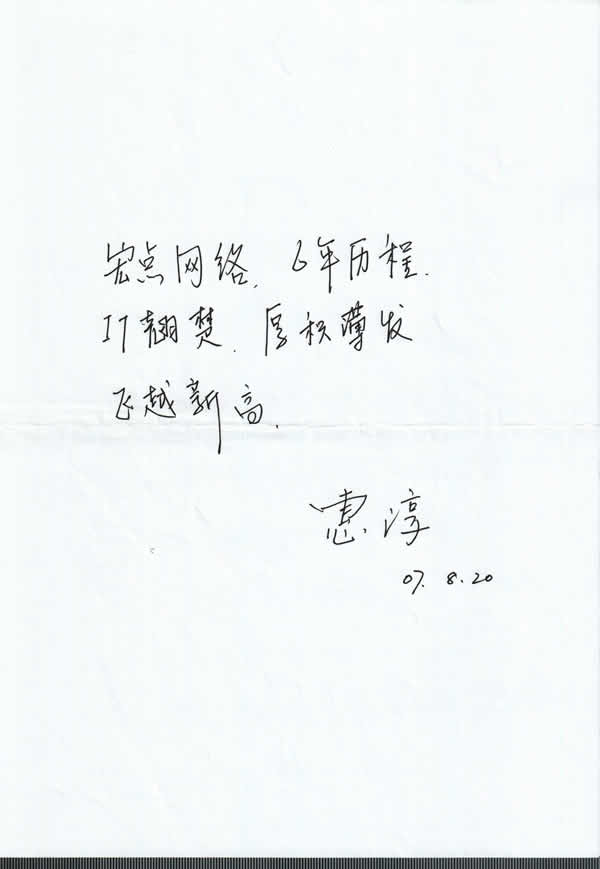 宏点网络. 6年历程.
IT翘楚. 厚积薄发
飞越新高.
惠淳
07. 8. 20